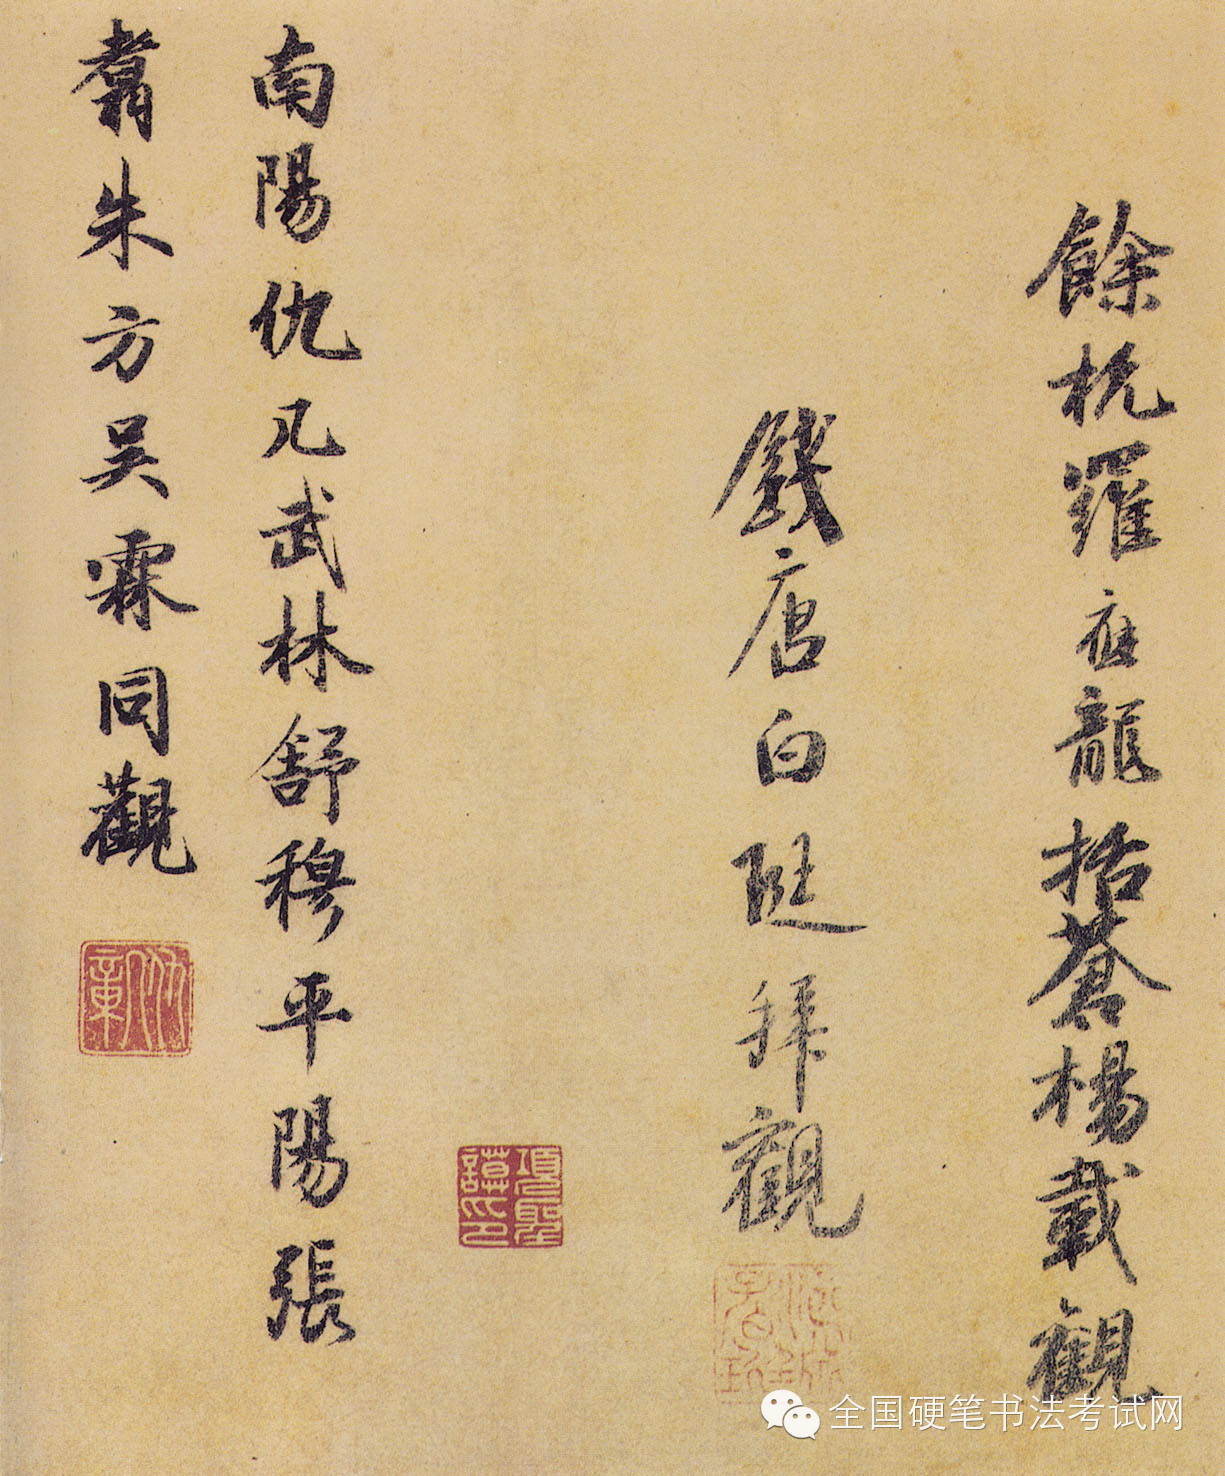 餘杭羅應龍括蒼楊載觀
錢唐白珽拜觀
南陽仇几武林舒穆平陽張
翥朱方吳霖同觀
項聖謨印
全国硬笔书法考试网